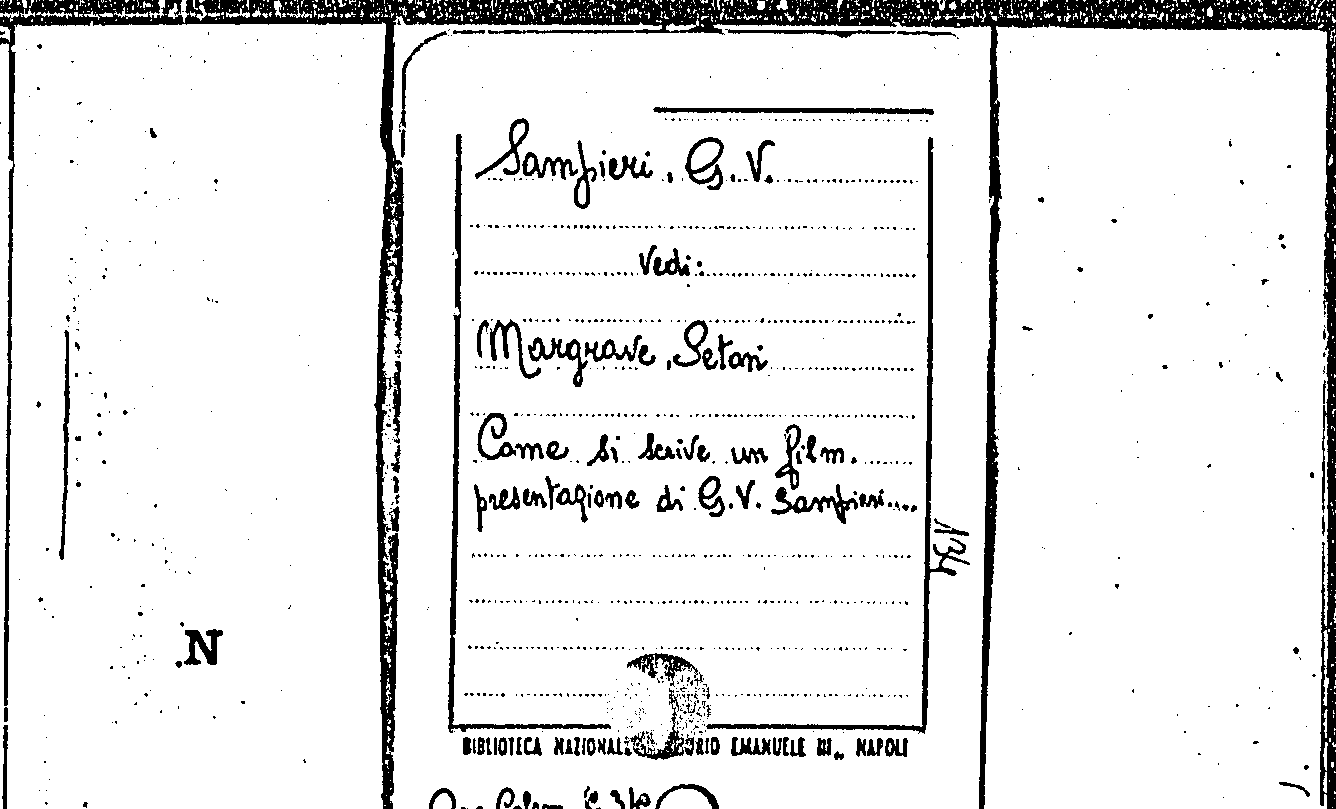 Sampieri, G. V.
Vedi:
Margrave, Seton
Come si scrive un film.
presentazione di G. V. Sampieri....
134
.N
BIBLIOTECA NAZIONALE EMANUELE III,, NAPOLI